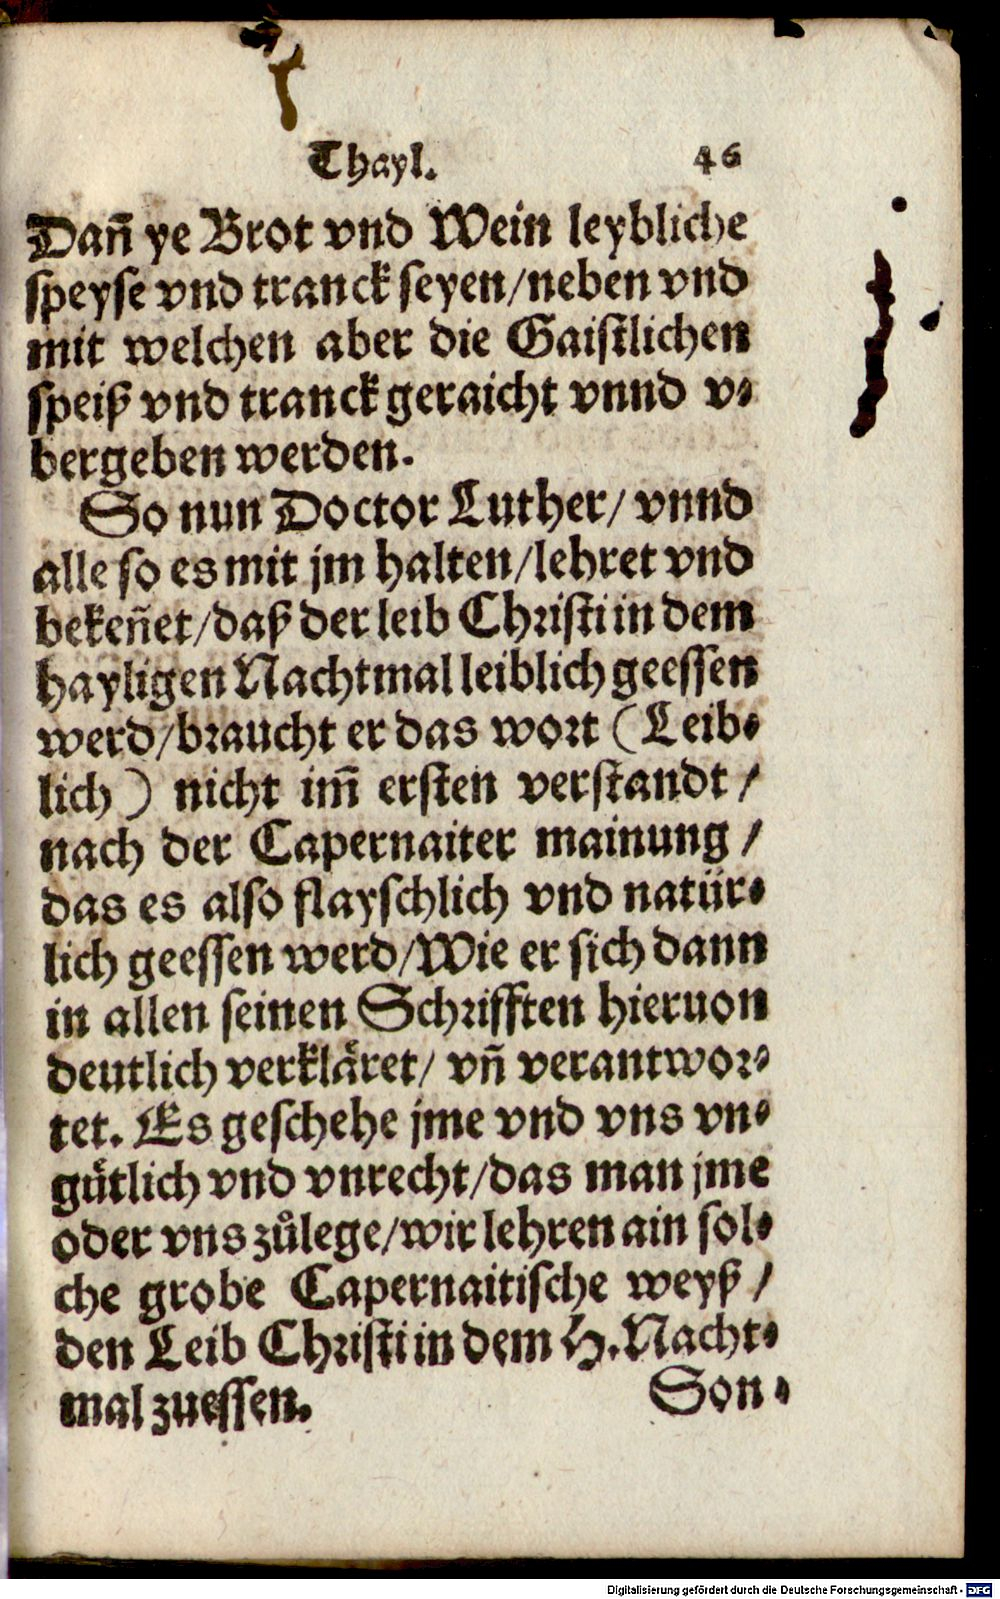 Thayl. 46
Dañ ye Brot vnd Wein leybliche
speyse vnd tranck seyen/neben vnd
mit welchen aber die Gaistlichen
speiß vnd tranck geraicht vnnd v⸗
bergeben werden.
So nun Doctor Luther/ vnnd
alle so es mit jm halten/lehret vnd
bekeñet/daß der leib Christi in dem
hayligen Nachtmal leiblich geessen
werd/braucht er das wort (Leib⸗
lich) nicht im̃ ersten verstandt/
nach der Capernaiter mainung/
das es also flayschlich vnd natür⸗
lich geessen werd/Wie er sich dann
in allen seinen Schrifften hieruon
deutlich verkläret/ vñ verantwor⸗
tet. Es geschehe jme vnd vns vn⸗
gütlich vnd vnrecht/das man jme
oder vns zůlege/wir lehren ain sol⸗
che grobe Capernaitische weyß/
den Leib Christi in dem H. Nacht⸗
mal zuessen.
Son⸗
Digitalisierung gefördert durch die Deutsche Forschungsgemeinschaft - DFG